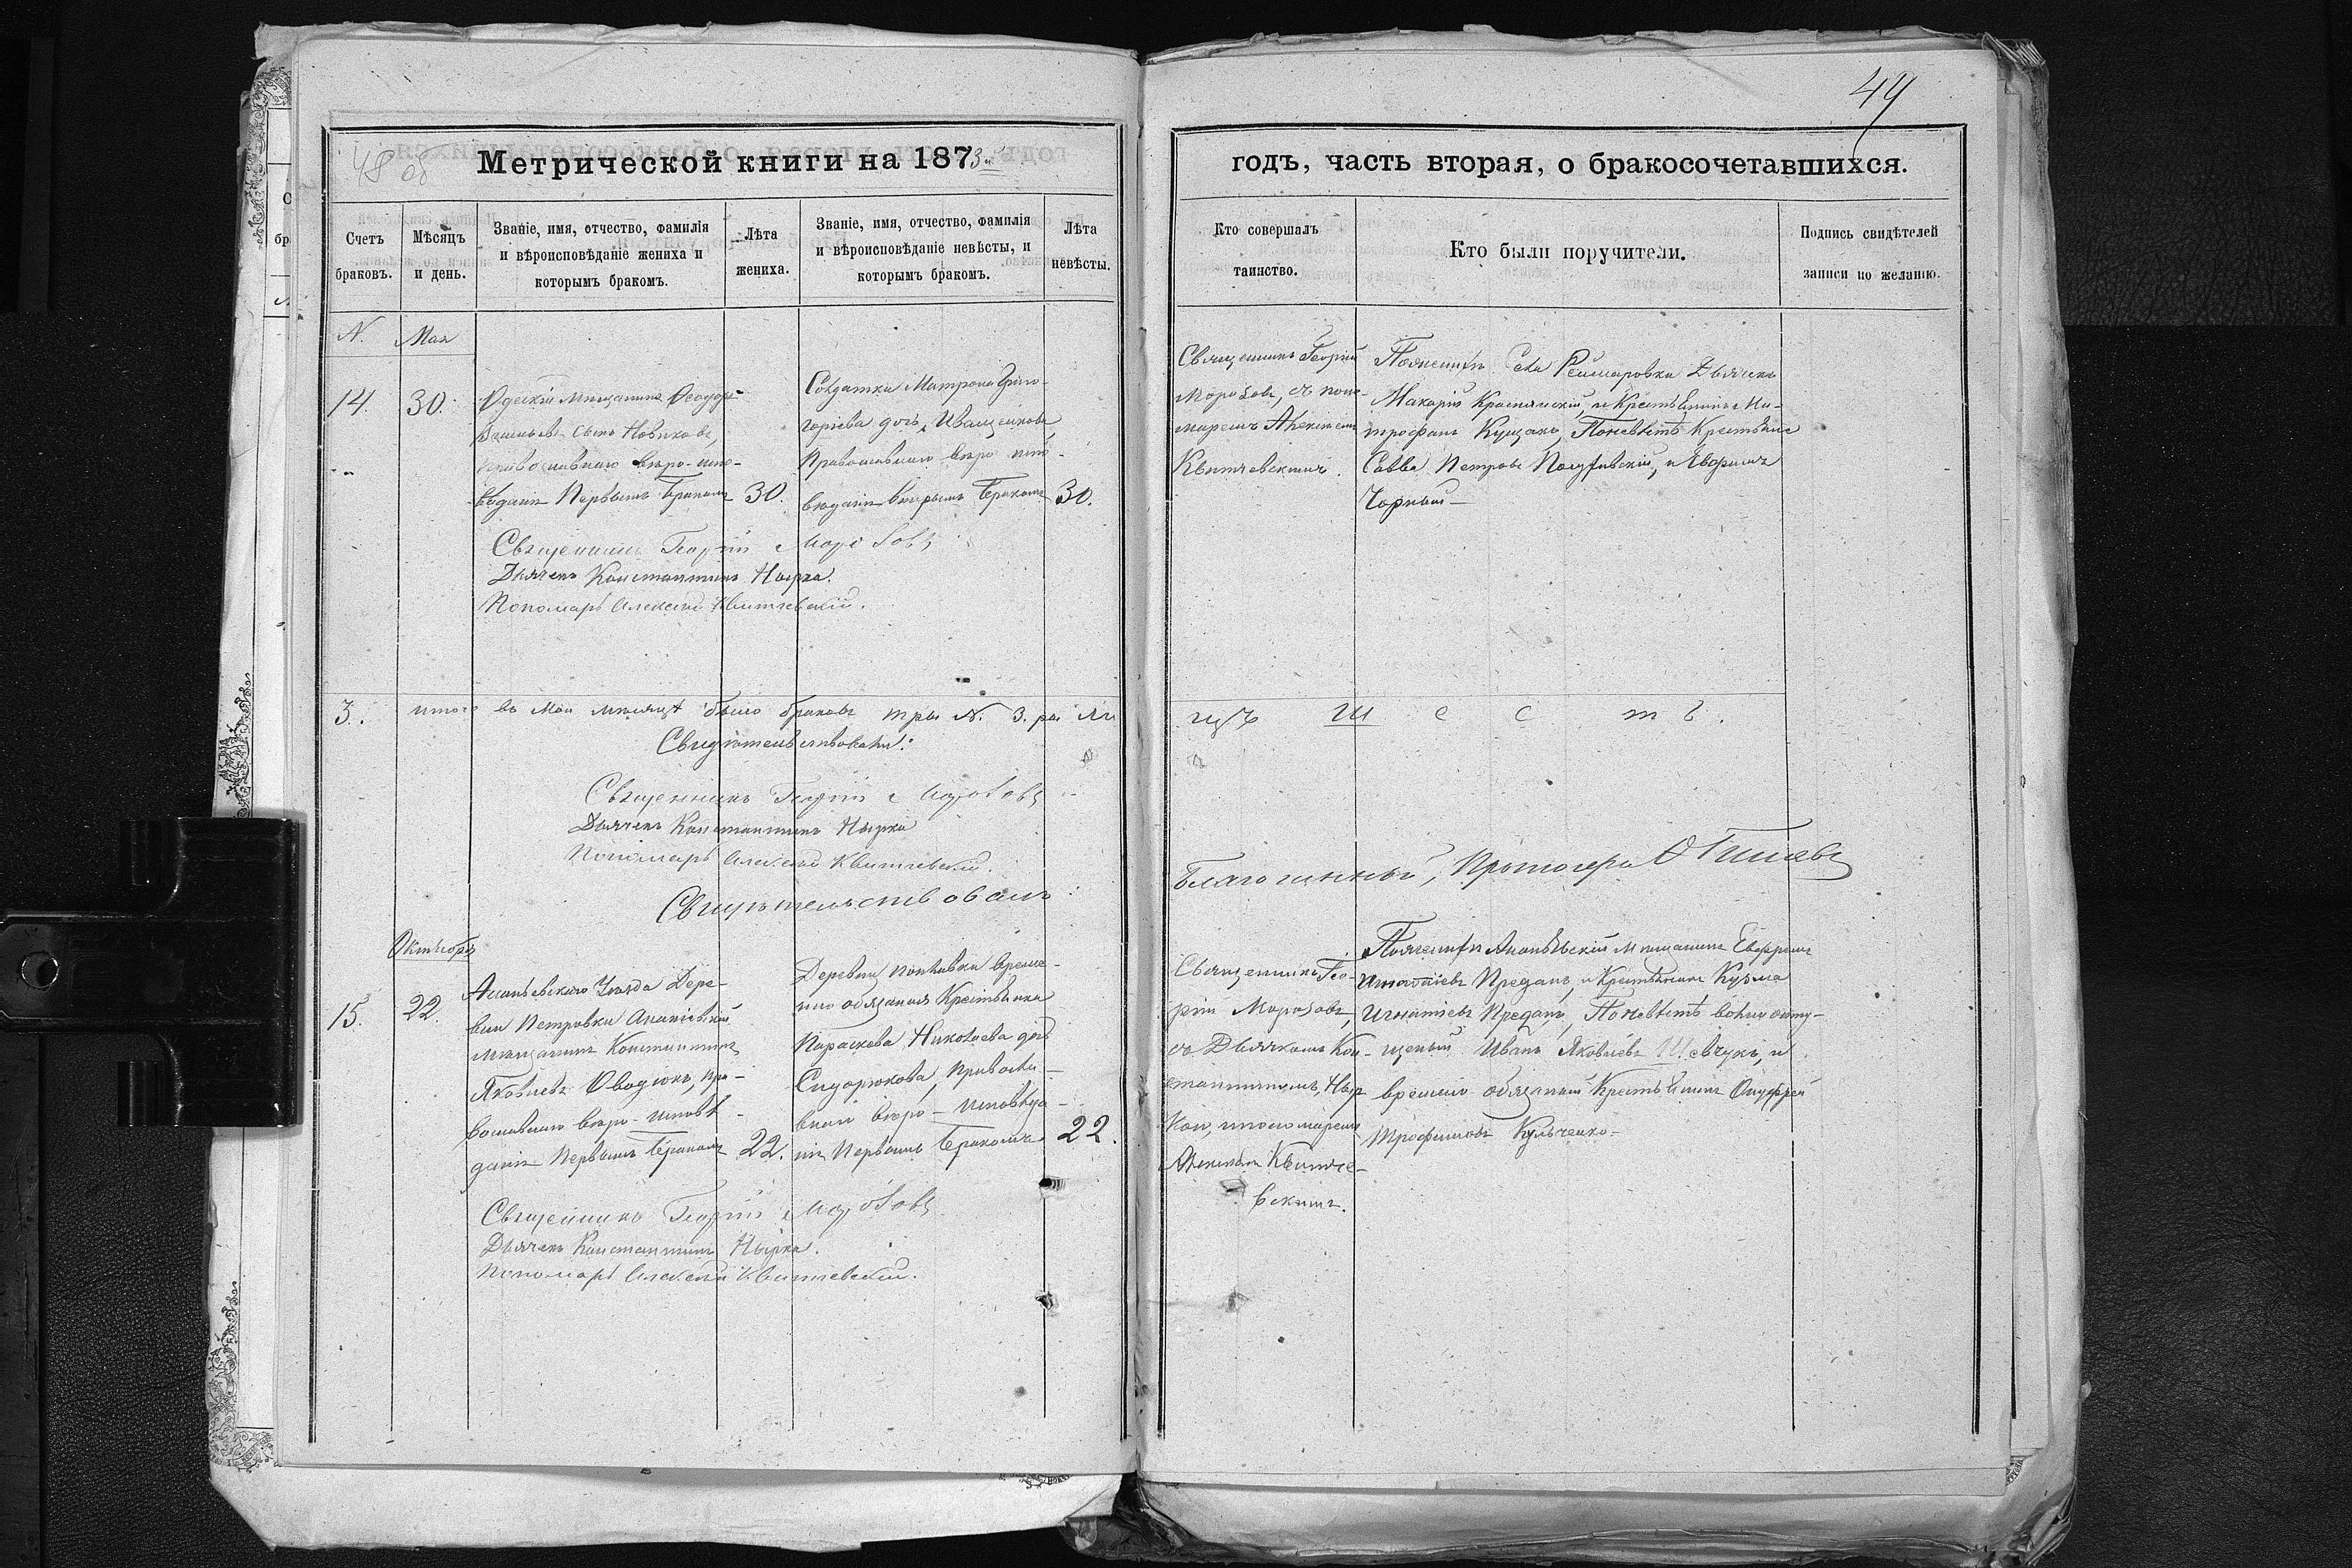 49
48 об
Метрической книги на 1873й
годъ, часть вторая, о бракосочетавшихся.
Счетъ браковъ.
Мѣсяцъ и день.
Званіе, имя, отчество, фамилія
и вѣроисповѣданіе жениха и
которымъ бракомъ.
Лѣта жениха.
Званіе, имя, отчество, фамилія
и вѣроисповѣданіе невѣсты, и
которымъ бракомъ.
Лѣта невѣсты.
Кто совершалъ
таинство.
Кто были поручители.
Подпись свидѣтелей
записи по желанію.
N.
Мая
14.
30.
Одескій мищанинъ Феодоръ
сынъ Новиковъ,
православнаго вѣро-испо-
вѣданія Первымъ Бракомъ
30.
Солдатка Матрона Григо-
горіева дочь, Иващенкова,
Православнаго вѣро испо-
вѣданія вторымъ Бракомъ
30.
Священникъ Георгій
Морозовъ, съ поно-
маремъ Алексіемъ
Квитчевскимъ.
Поженихи Села Реймаровки Дьячекъ
Макарій и Крестьянинъ Ми-
трофанъ Кущакъ, Поневѣстѣ Крестьяне
Савва Петровъ и Ефимъ
Чорный
Священникъ Георгій Морозовъ
Дьячекъ Константинъ Нырка.
Пономарь Алексій Квитчевскій.
3.
итого въ Маи мѣсяцѣ было браковъ тры N. 3. ра Ли
цъ Ш е с т ь.
Свидѣтельствовали:
Священникъ Георгій Морозовъ
Дьячекъ Константинъ Нырка
Пономарь Алексій Квитчевскій.
Свидѣтельствовалъ:
Благочинный, Протоіерей
Октября
15.
22
Ананьевскаго Уѣзда Дере-
вни Петровки Ананіевскій
мищанинъ Константинъ
Яковлевъ Оводюкъ, пра-
вославнаго вѣро-исповѣ-
данія Первымъ Бракомъ
22.
Деревни Поплавки време-
нно обязаная Крестьянка
Параскева Николаева дочь
Сидорюкова, Правосла-
вной вѣро-исповѣда-
нія Первымъ Бракомъ
22.
Священникъ Гео-
ргій Морозовъ,
со Дьячкомъ Кон-
стантиномъ, Ныр
кой, ипономаремъ
Алексіемъ Квитче-
вскимъ.
Поженихи Ананьевскій мищанинъ Евфремъ
Игнатіевъ Преданъ, и Крестьянинъ Кузма
Игнатіевъ Преданъ, Поневѣстѣ вольно отпу-
щеный Иванъ Яковлевъ Шевчукъ, и
времено обязаный Крестьянинъ Онуфрей
Трофимовъ Кульченко
Священникъ Георгій Морозовъ
Дьячекъ Константинъ Нырка.
Пономарь Алексій Квитчевскій.